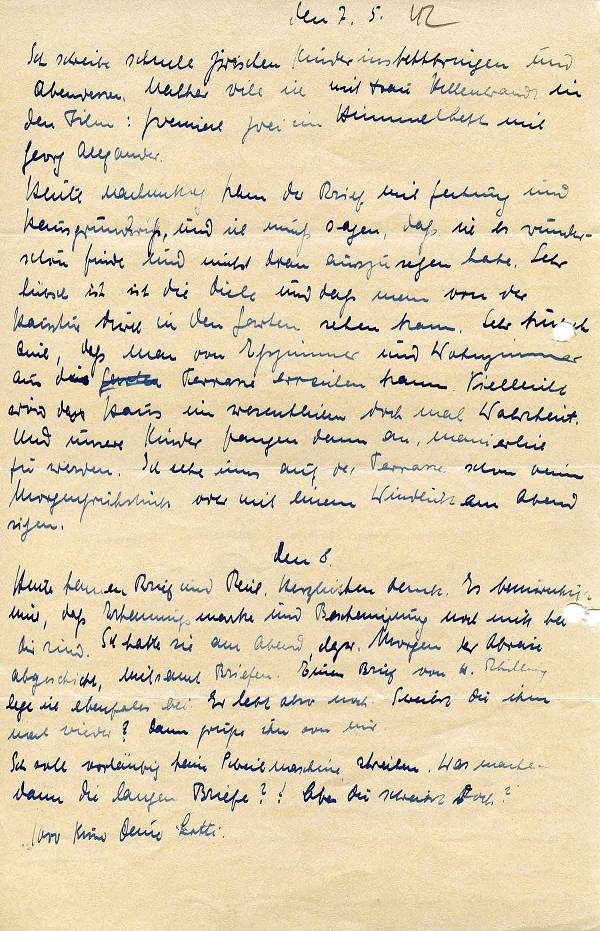 den 7. 5. 42
Ich schreibe schnell zwischen Kinderinsbettbringen und
Abendessen. Nachher will ich mit Frau Hellenbrandt in
den Film: Premiere zwei im Himmelbett mit
Georg Alexander.
Heute nachmittag kam der Brief mit Zeitung und
Hausgrundriß, und ich muß sagen, daß ich es wunder-
schön finde und nichts dran auszusetzen habe. Sehr
hübsch ist die Diele und daß man von der
Haustür durch in den Garten sehen kann. Sehr hübsch
auch, daß man von Esszimmer und Wohnzimmer
aus die Terrasse erreichen kann. Vielleicht
wird das Haus im wesentlichen doch mal Wahrheit.
Und unsere Kinder fangen dann an, manierlich
zu werden. Ich sehe uns auf der Terrasse schon beim
Morgenfrühstück oder mit einem Windlicht am Abend
sitzen.
den 8.
Heute kamen Brief und Herzlichsten Dank. Es beunruhigt
mich, daß und Bescheinigung noch nicht bei
dir sind. Ich hatte sie am Abend, Morgen der Abreise
abgeschickt, mitsamt Briefen. Einen Brief von H. Schilling
lege ich ebenfalls bei. Er lebt also noch. Schreibst du ihm
mal wieder? Dann grüße ihn von mir.
Ich soll vorläufig keine Schreibmaschine schreiben. Was mache
dann die langen Briefe?? Aber du schreibst doch?
Deine Lotti.